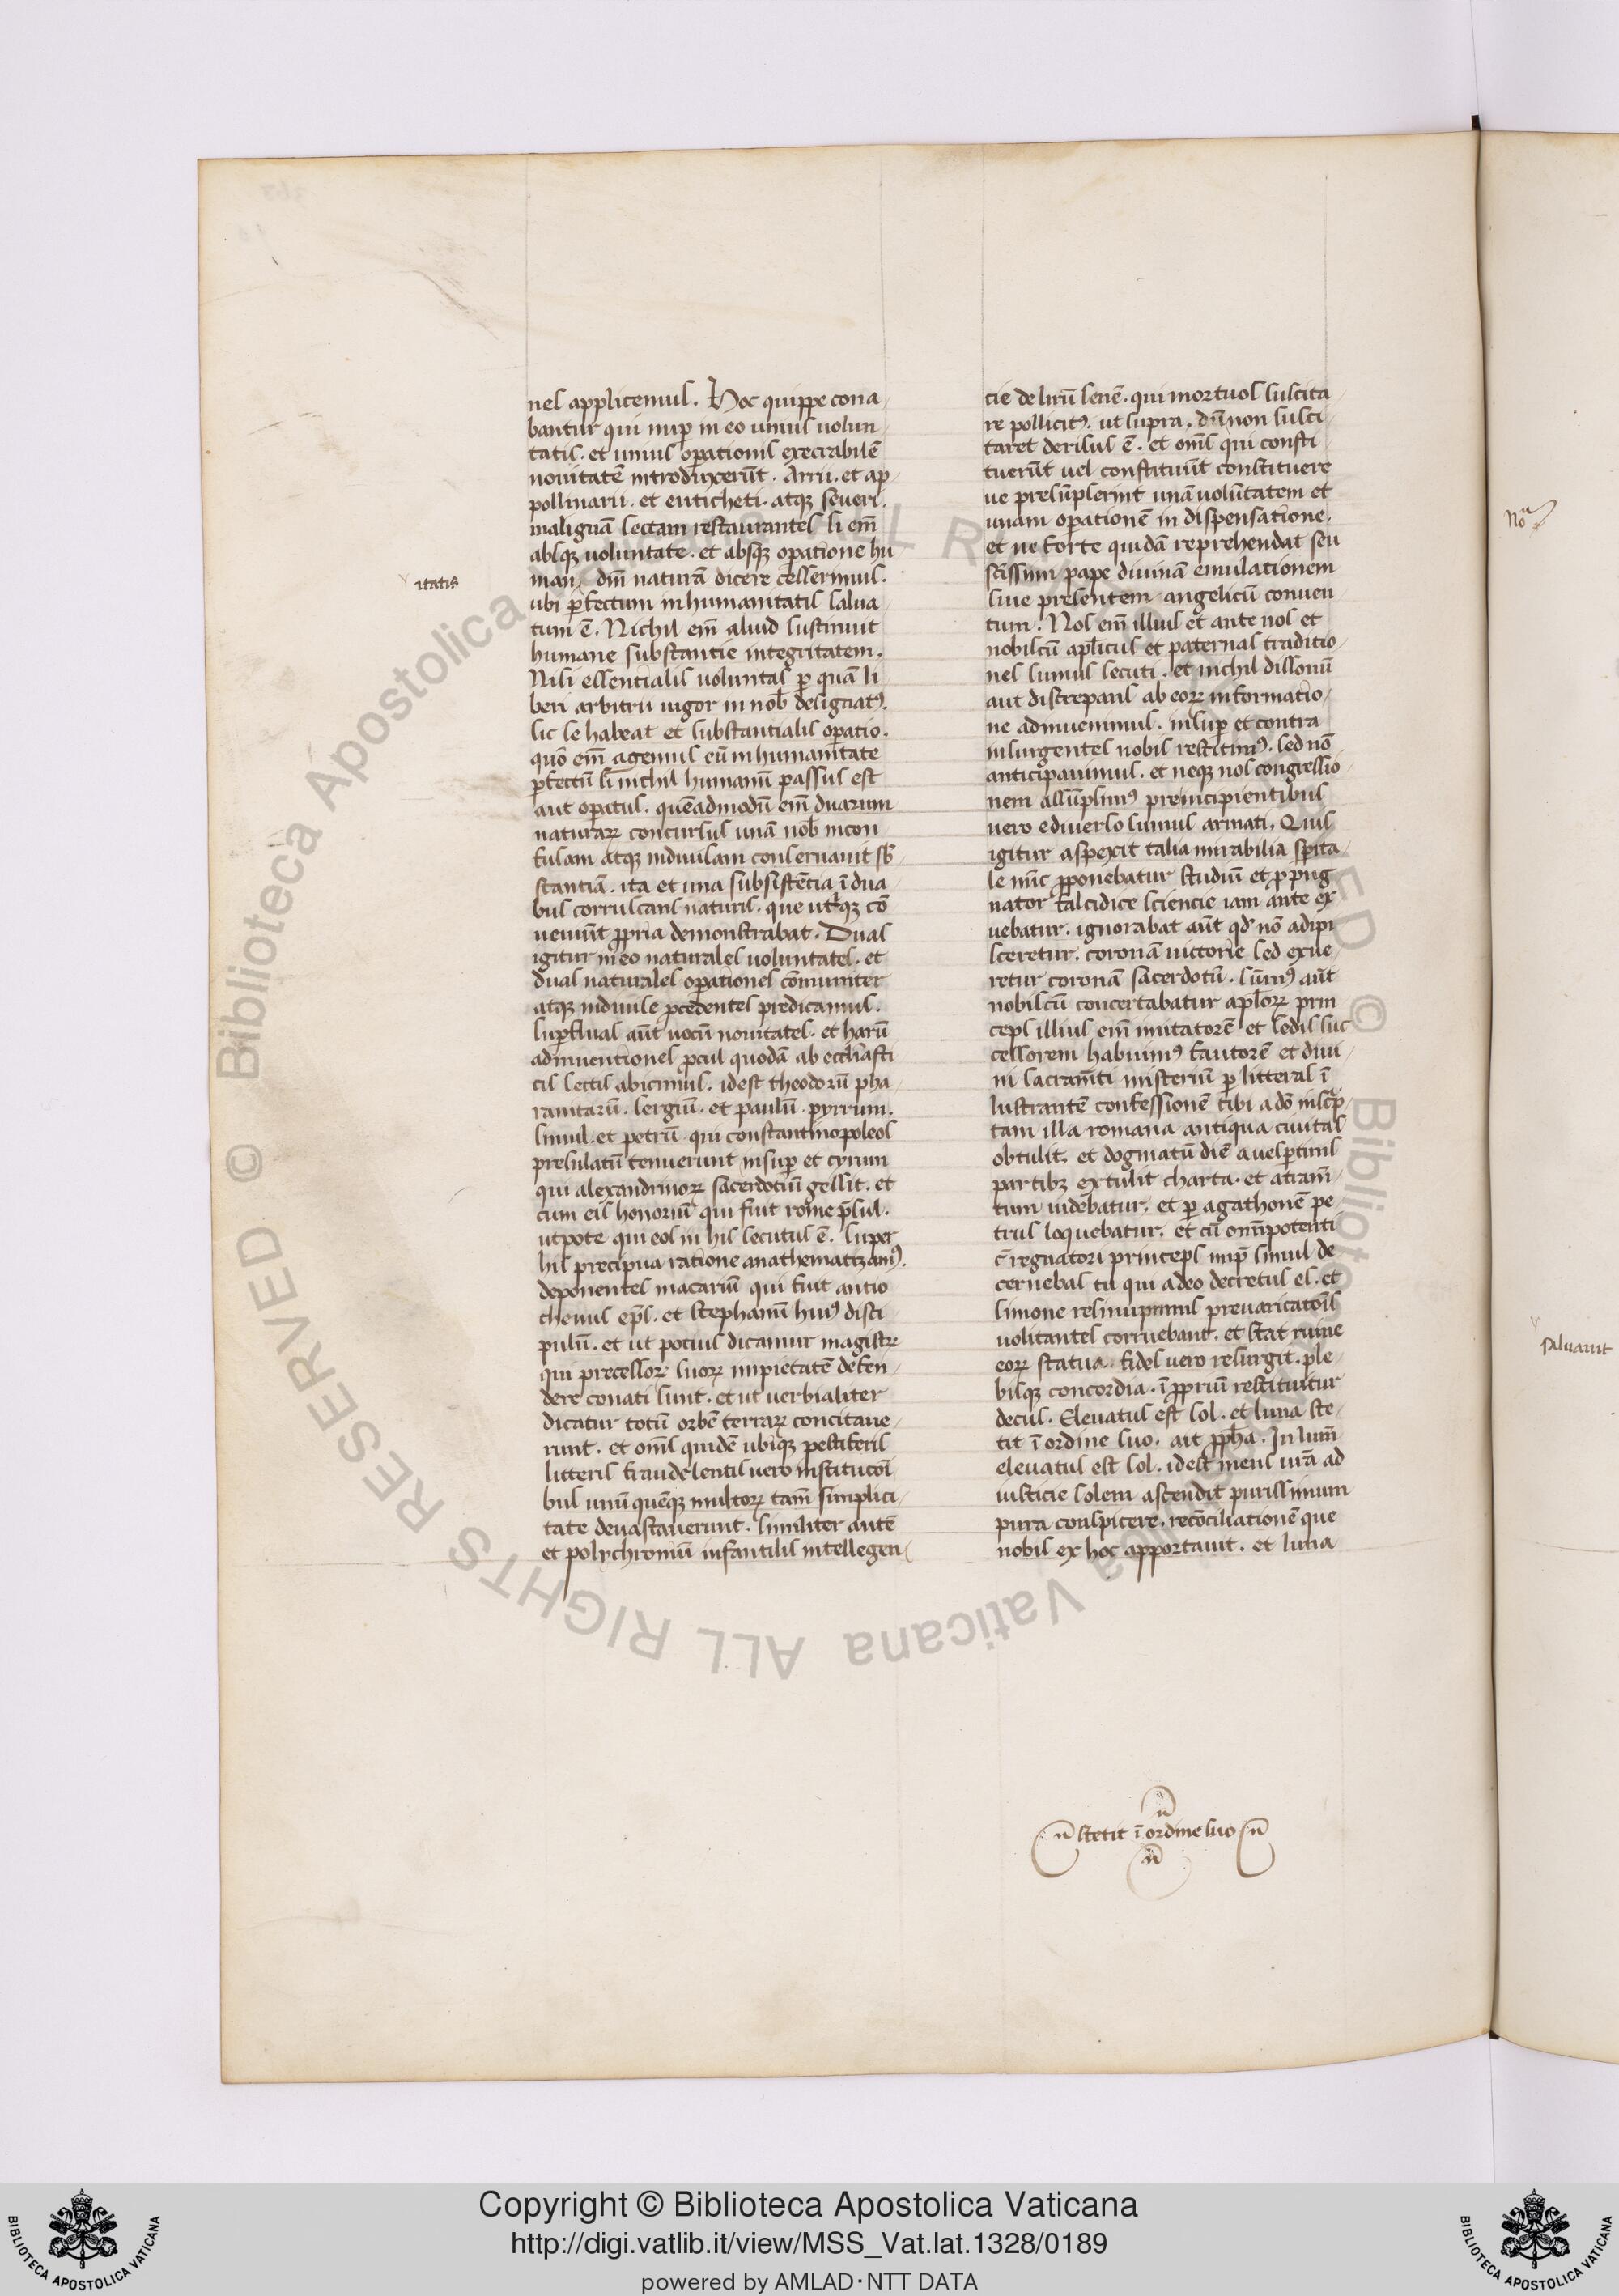 nes applicemus. Hoc quippe cona
bantur qui nup̱ in eo unius uolun
tatis. et unius op̱ationis execrabilē
nouitatē introduxerūt. Arrii. et ap
pollinarii. et euticheti. atqꝫ seueri.
malignā sectam restaurantes si em̄
absqꝫ uoluntate. et absqꝫ op̱atione hu
man dn̄i naturā dicere cesserimus.
itatis
ubi p̱fectum inhumanitatis salua
tum ē. Nichil em̄ aliud sustinuit
humane substantie integritatem.
Nisi essentialis uoluntas p̱ quā li
beri arbitrii uigor in nob̄ designatꝰ.
sic se habeat et substantialis op̱atio.
quō em̄ agemus eū inhumanitate
p̱fectū si nichil humanū passus est
aut op̱atus. quēadmodū em̄ duarum
naturaꝝ concursus unā nob̄ incon
fusam atqꝫ indiuisam conseruauit sb̄
stantiā. ita et una subsistētia ī dua
bus corruscans naturis. que utrqꝫ cō
ueniūt ꝓpria demonstrabat. Duas
igitur in eo naturales uoluntates. et
duas naturales op̱ationes cōmuniter
atqꝫ indiuise ꝓcedentes predicamus.
sup̱fluas aūt uocū nouitates. et harū
adinuentiones ꝓcul quodā ab eccl̄iasti
cis septis abicimus. idest theodorū pha
ranitarū. sergiū. et paulū. pyrrum.
simul. et petrū. qui constantinopoleos
presulatū tenuerunt insup̱ et cyrum
qui alexandrinoꝝ sacerdotiū gessit. et
cum eis honoriū qui fuit rome p̄sul.
utpote qui eos in his secutus ē. super
his precipua ratione anathematizamꝰ.
deponentes macariū qui fuit antio
chenus ep̄s. et stephanū huiꝰ disci
pulū. et ut potius dicamur magistꝝ
qui precessoꝝ suoꝝ impietatē defen
dere conati sunt. et ut uerbialiter
dicatur totū orbē terraꝝ concitaue
runt. et om̄s quidē ubiqꝫ pestiferis
litteris fraudelentis uero institucōi
bus unū quēqꝫ multoꝝ tam̄ simplici
tate deuastauerunt. similiter autē
et polychroniū infantilis intellegen
cie de lirū senē. qui mortuos suscita
re pollicitꝰ. ut supra. dū non susci
taret derisus ē. et om̄s qui consti
tuerūt uel constituūt constituere
ue presūpserint unā uolūtatem et
unam op̱ationē in dispensatione.
et ne forte quidā reprehendat seu
sc̄issimi pape diuinā emulationem
siue presentem angelicū conuen
tum. Nos em̄ illius et ante nos et
nobiscū ap̄licus et paternas traditio
nes sumus secuti. et nichil dissonū
aut discrepans ab eoꝝ informatio
ne adinuenimus. insup̱ et contra
insurgentes nobis restitimꝰ. sed nō
anticipauimus. et neqꝫ nos congressio
nem assūpsimꝰ preincipientibus
uero ediuerso sumus armati. Quis
igitur aspexit talia mirabilia sp̄ita
le nūc ꝓponebatur studiū et ꝓpug
nator falcidice sciencie iam ante ex
uebatur. ignorabat aūt qd̄ nō adipi
sceretur. coronā uictorie sed exue
retur coronā sacerdotū. sūmꝰ aūt
nobiscū concertabatur ap̄loꝝ prin
ceps illius em̄ imitatorē et sedis suc
cessorem habuimꝰ fautorē et diui
ni sacram̄ti misteriū p̱ litteras ī
lustrantē confessionē tibi a dō inscp̄
tam illa romana antiqua ciuitas
obtulit. et dogmatū diē auesp̱tinis
partibꝫ extulit charta. et atram̄
tum uidebatur. et p̱ agathonē pe
trus loquebatur. et cū om̄ipotenti
c̄regnatori princeps imp̄ simul de
cernebas tu qui adeo decretus es. et
simone resinupinnis preuaricatōīs
uolitantes corruebant. et stat ruine
eoꝝ statua. fides uero resurgit. ple
bisqꝫ concordia. ī ꝓpriū restituitur
decus. Eleuatus est sol. et luna ste
tit ī ordine suo. ait ꝓph̄a. In lum̄
eleuatus est sol. idest mens uīa ad
iusticie solem ascendit purissimum
pura conspicere. recōciliationē que
nobis ex hoc apportauit. et luna
stetit ī ordine suo
Noᵃ
saluauit
© Biblioteca Apostolica Vaticana ALL RIGHTS RESERVED © Biblioteca Apostolica Vaticana ALL RIGHTS RESERVED
Copyright © Biblioteca Apostolica Vaticana
http://digi.vatlib.it/view/MSS_Vat.lat.1328/0189
powered by AMLAD·NTT DATA
BIBLIOTECA APOSTOLICA VATICANA
BIBLIOTECA APOSTOLICA VATICANA